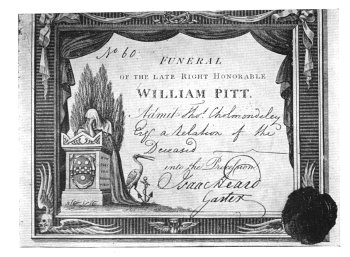 No 60.
FUNERAL
OF THE LATE RIGHT HONORABLE
WILLIAM PITT.
Admit Thos. Cholmondeley
Esqr. a Relation of the
Deceased
into the Procession
Isaac Heard
Garter